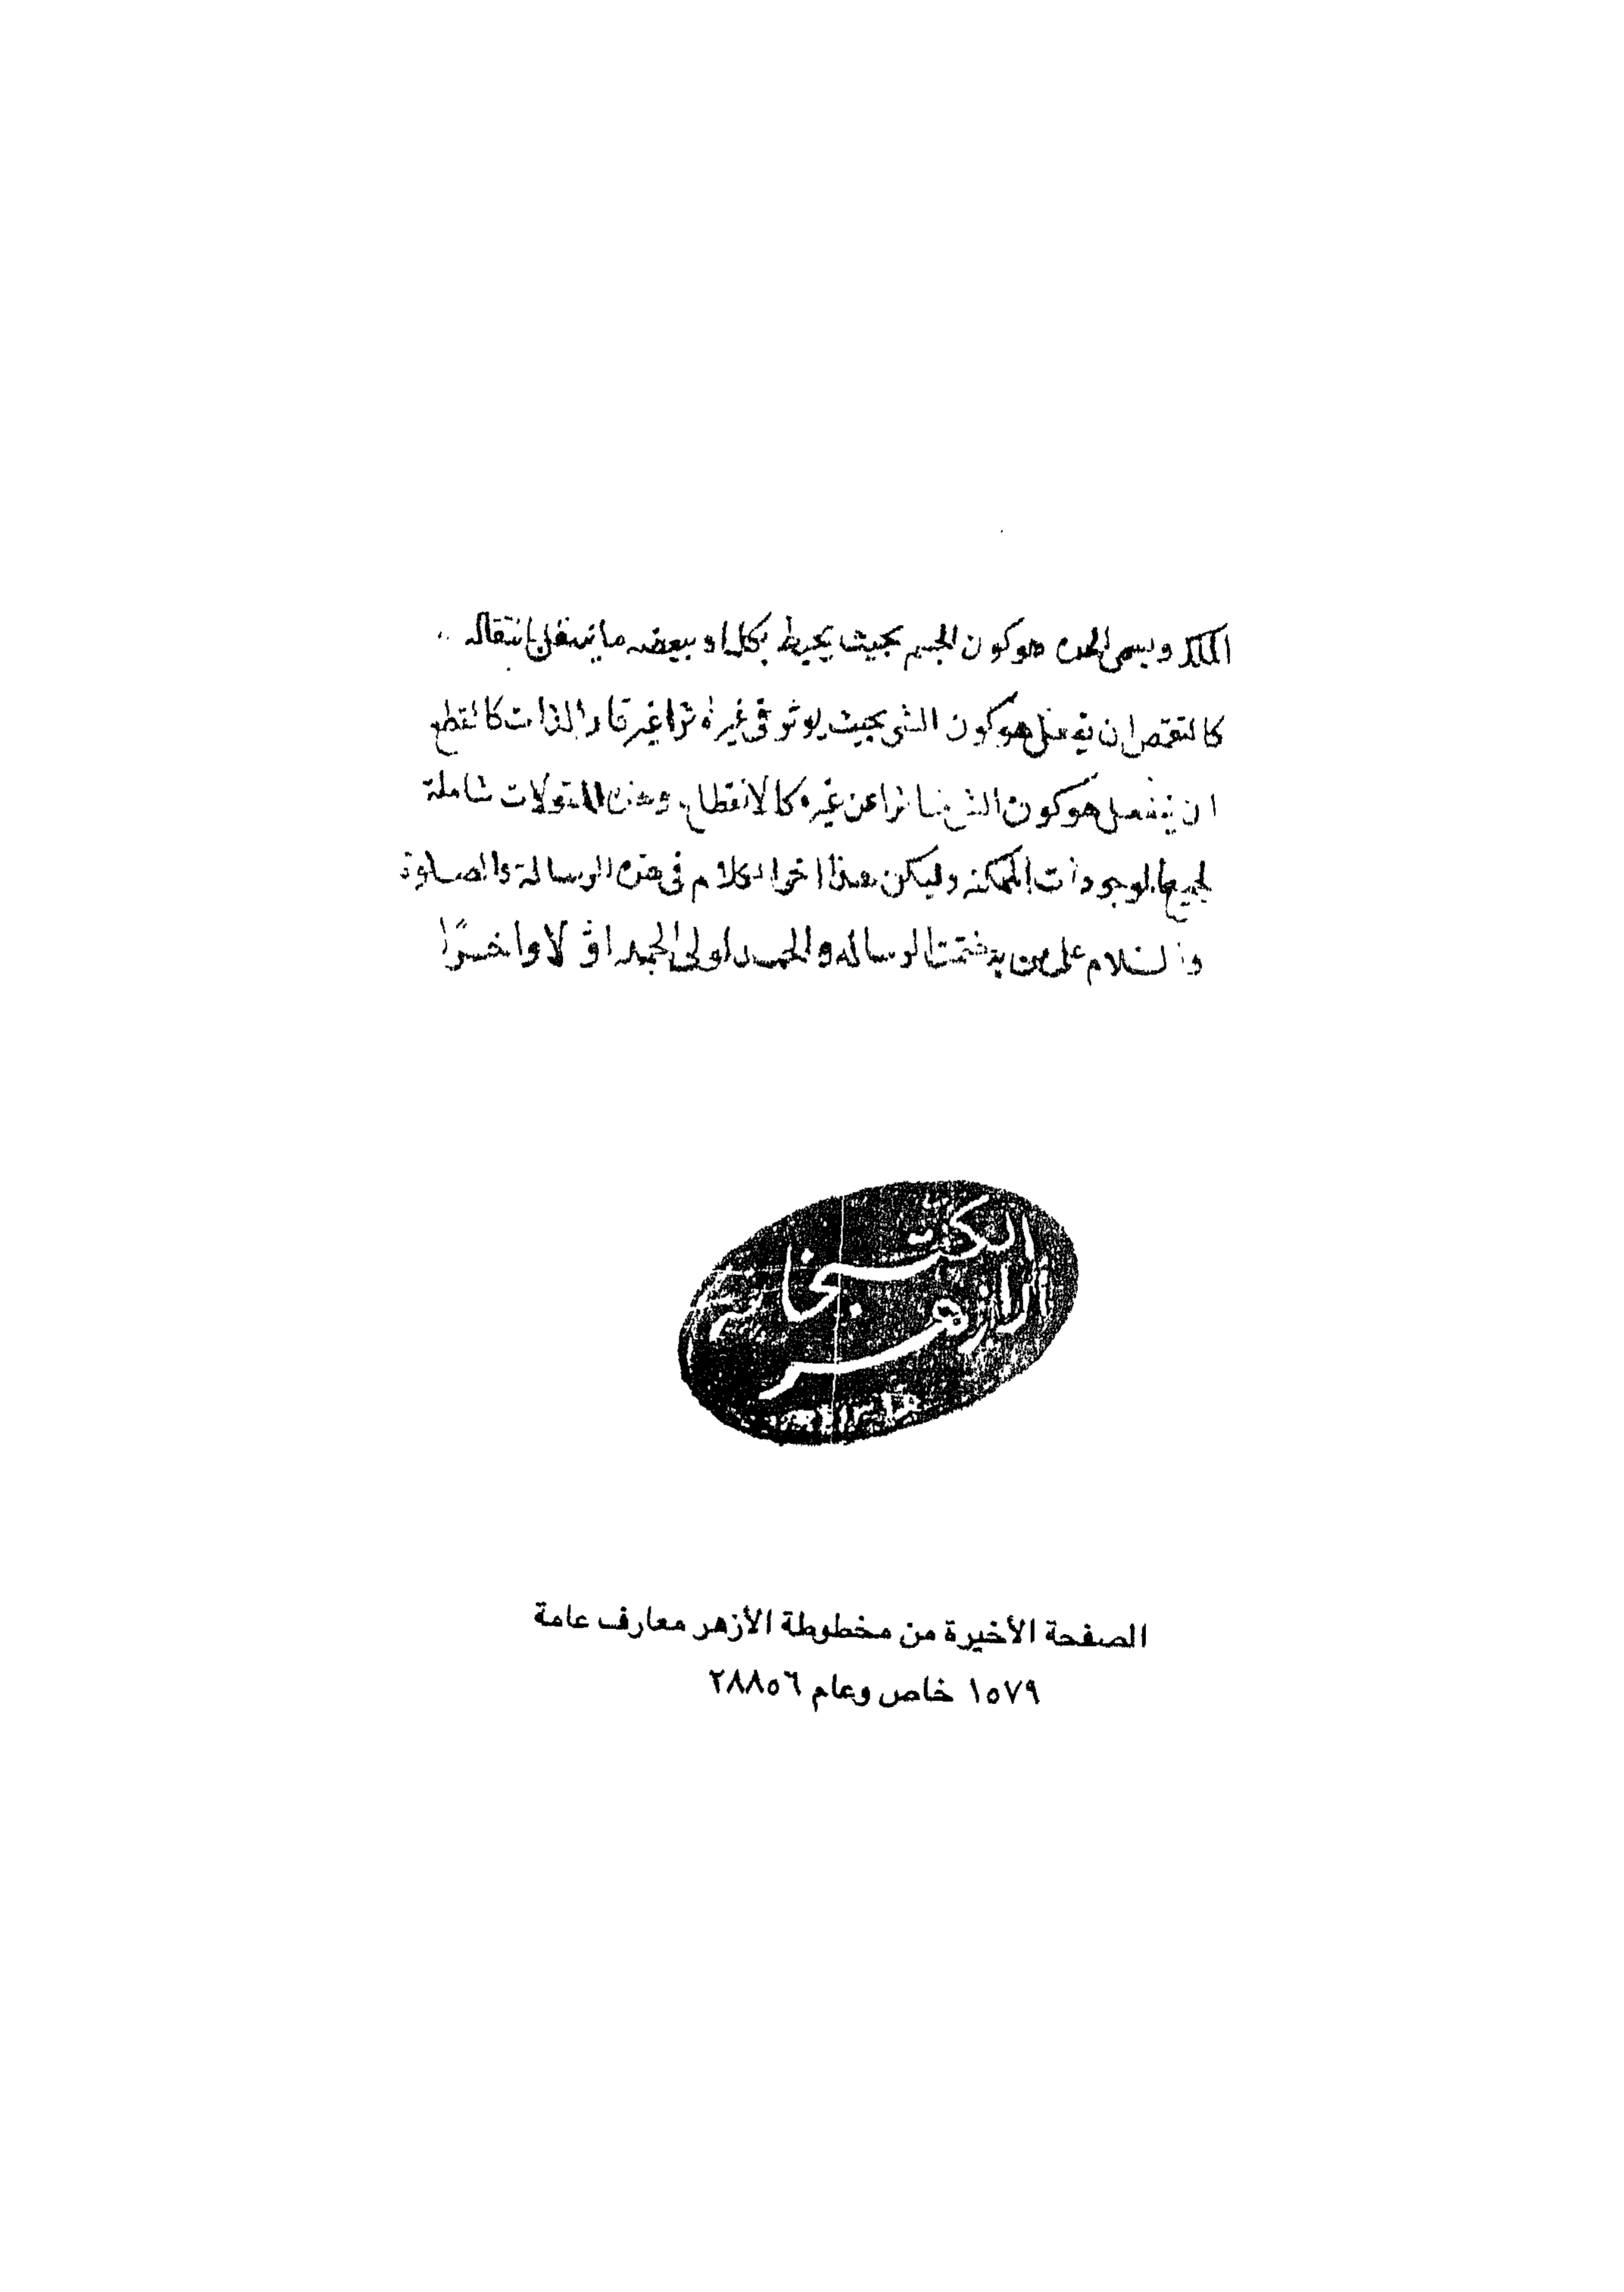 الملك ويسمى الجده هو كون الجسم بحيث يحيط بكله او ببعضه ما ينتقل بانتقاله
كالتقمص ان يفعل هو كون الشي بحيث يوثر في غيره اثرا غير قار الذات كالقطع
ان ينفعل هو كون الشي متاثرا عن غيره كالانقطاع وهذه المقولات شاملة
لجميع الموجودات الممكنه وليكن هذا اخر الكلام في هذه الرسالة والصلوة
والسلام على من به ختمت الرساله والحمد لولى الحمد اوّلا واخرًا
الكتبخانه
الازهر
الصفحة الأخيرة من مخطوطة الأزهر معارف عامة
١٥٧٩ خاص وعام ٢٨٨٥٦